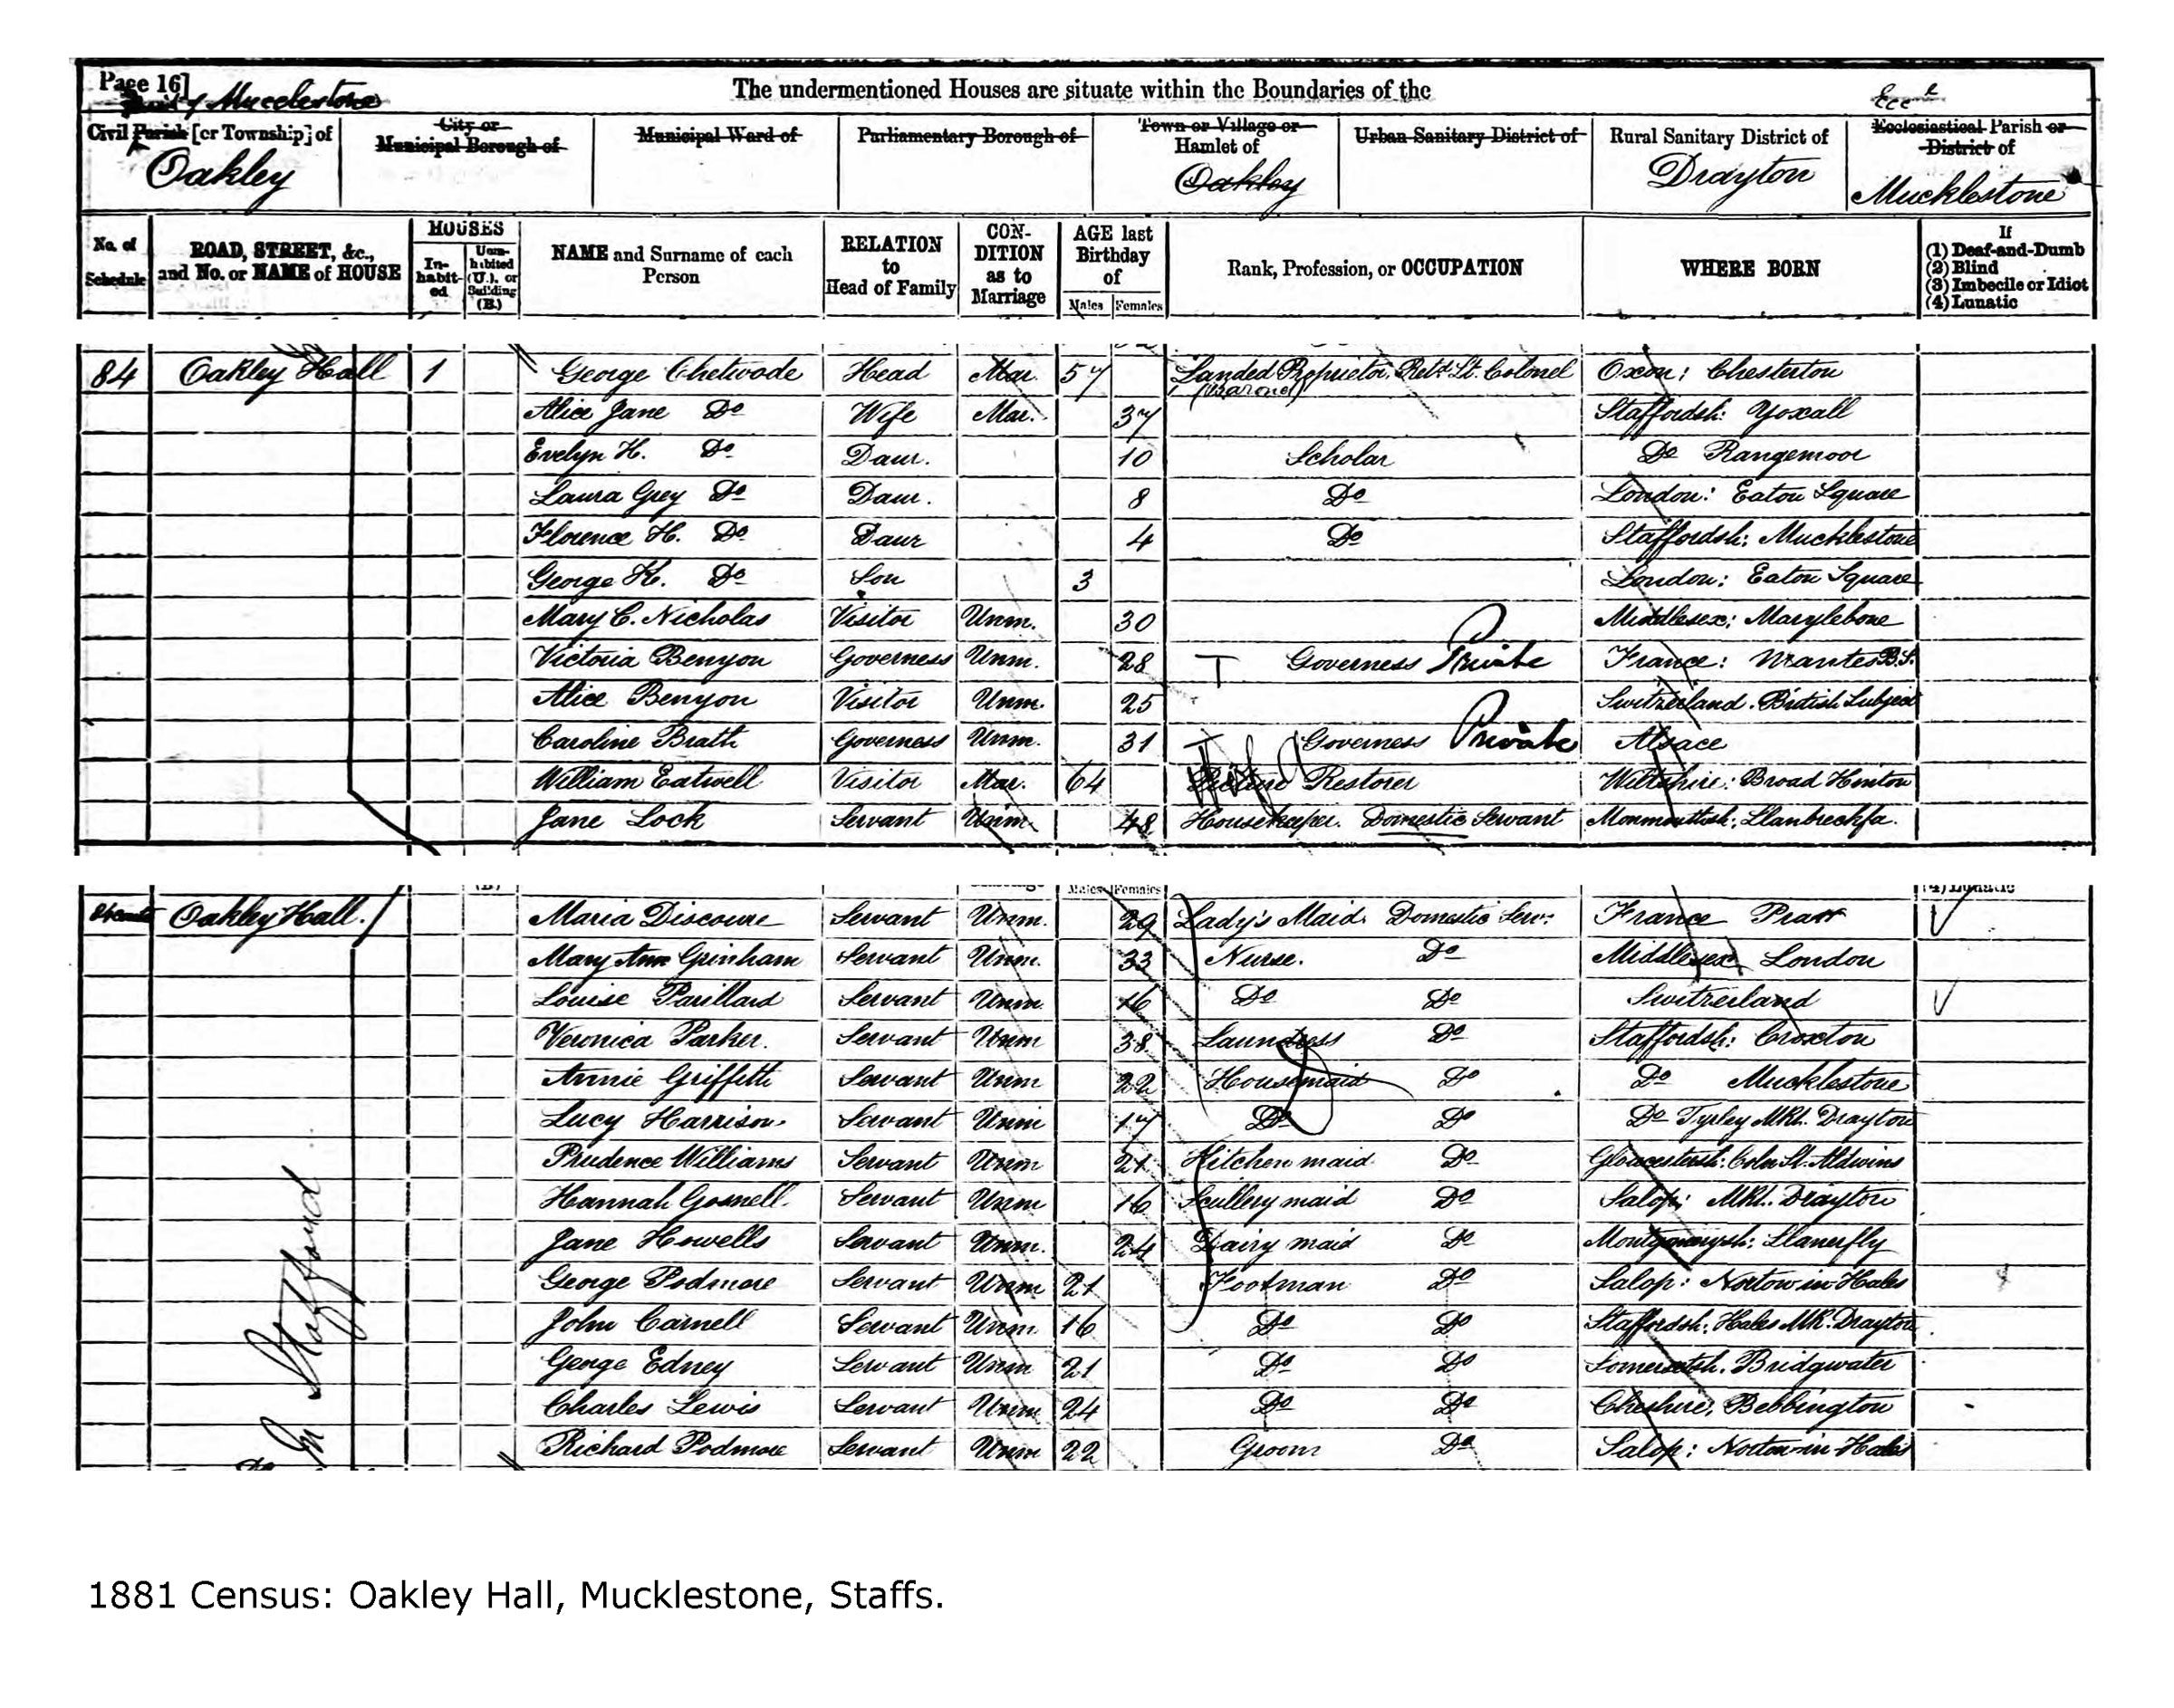 Page 16]
of Mucclestone
The undermentioned Houses are situate within the Boundaries of the
Civil Parish [or Township] of
City or Municipal Borough of
Municipal Ward of
Parliamentary Borough of
Town or Village or Hamlet of
Urban Sanitary District of
Rural Sanitary District of
Ecclesiastical Parish or District of
Oakley
Oakley
Drayton
Mucklestone
No. of Schedule
ROAD, STREET, &c., and No. or NAME of HOUSE
HOUSES
Inhabited
Uninhabited (U.), or Building (B.)
NAME and Surname of each Person
RELATION to Head of Family
CONDITION as to Marriage
AGE last Birthday of
Males Females
Rank, Profession, or OCCUPATION
WHERE BORN
If
(1) Deaf-and-Dumb
(2) Blind
(3) Imbecile or Idiot
(4) Lunatic
84 Oakley Hall 1 George Chetwode Head Mar. 57 Landed Proprietor, Retd. Lt. Colonel Oxon: Chesterton
(Baronet)
Alice Jane Do Wife Mar. 37 Staffordsh: Yoxall
Evelyn H. Do Daur. 10 Scholar Do Rangemoor
Laura Grey Do Daur. 8 Do London: Eaton Square
Florence H. Do Daur 4 Do Staffordsh: Mucklestone
George K. Do Son 3 London: Eaton Square
Mary C. Nicholas Visitor Unm. 30 Middlesex: Marylebone
Victoria Benyon Governess Unm. 28 T Governess Private France: Nantes B.S.
Alice Benyon Visitor Unm. 25 Switzerland. British Subject
Caroline Brath Governess Unm. 31 T Governess Private Alsace
William Eatwell Visitor Mar. 64 Picture Restorer Wiltshire: Broad Hinton
Jane Lock Servant Unm. 48 Housekeeper. Domestic Servant Monmouthsh: Llanbrechfa.
(B.) Males Females (4) Lunatic
Oakley Hall. Maria Discoure Servant Unm. 29 Lady's Maid. Domestic Serv: France
Mary Ann Grinham Servant Unm. 33 Nurse. Do Middlesex London
Louise Parillard Servant Unm 16 Do Do Switzerland
Veronica Parker. Servant Unm 38 Laundress Do Staffordsh: Croxton
Annie Griffith Servant Unm 22 Housemaid Do Do Mucklestone
Lucy Harrison Servant Unm 17 Do Do Do Tyrley Mkt. Drayton
Prudence Williams Servant Unm 21 Kitchen maid. Do Gloucestersh: Coln St. Aldwins
Hannah Gosnell. Servant Unm 16 Scullery maid Do Salop: Mkt. Drayton
Jane Howells Servant Unm. 24 Dairy maid Do Montgomerysh: Llanerfly
George Podmore Servant Unm 21 Footman Do Salop: Norton in Hales
John Carnell Servant Unm 16 Do Do Staffordsh. Hales Mk. Drayton
George Edney Servant Unm 21 Do Do Somersetsh. Bridgwater
Charles Lewis Servant Unm 24 Do Do Cheshire, Bebbington
Richard Podmore Servant Unm 22 Groom Do Salop: Norton-in-Hales
In Stafford
1881 Census: Oakley Hall, Mucklestone, Staffs.